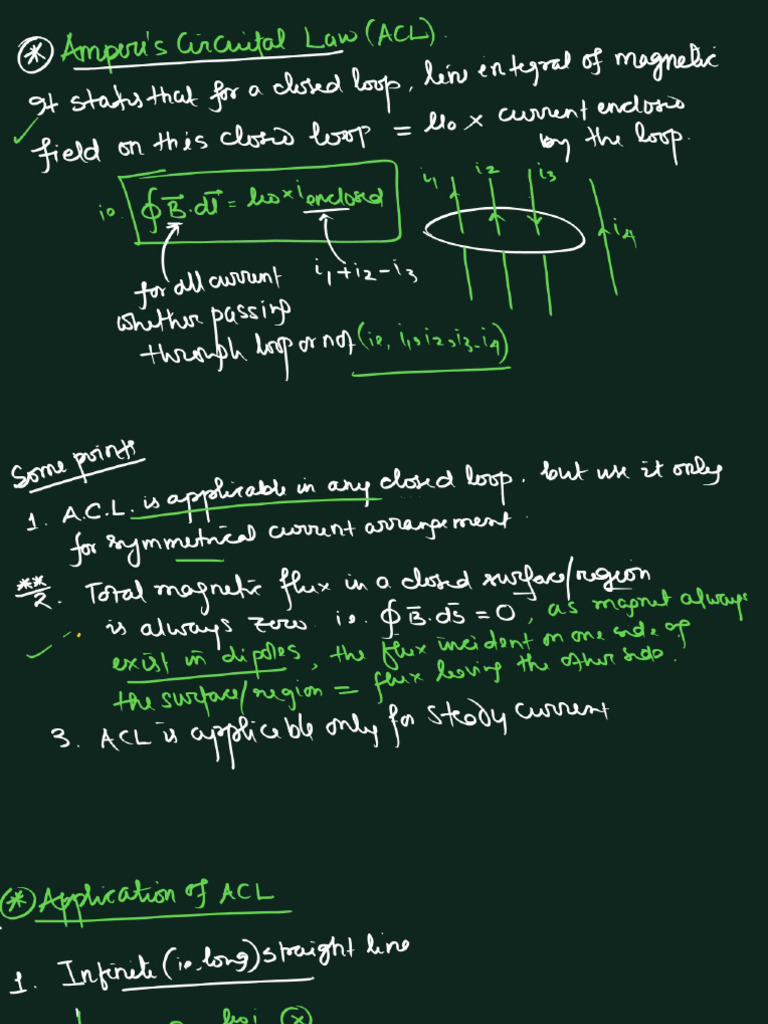 * Ampere's Circuital Law (ACL).
It states that for a closed loop, line integral of magnetic
field on this closed loop = μo × current enclosed
by the loop.
ie. ∮ B⃗.dl⃗ = μo × i enclosed
i1 i2 i3
i4
for all current
whether passing
through loop or not (ie, i1, i2, i3, i4)
i1 + i2 - i3
Some points
1. A.C.L. is applicable in any closed loop, but use it only
for symmetrical current arrangement.
** 2. Total magnetic flux in a closed surface/region
is always zero. ie. ∮ B⃗.ds⃗ = 0, as magnet always
exist in dipoles, the flux incident on one side of
the surface/region = flux leaving the other side.
3. ACL is applicable only for steady current
* Application of ACL
1. Infinite (ie. long) straight line
μoi ×